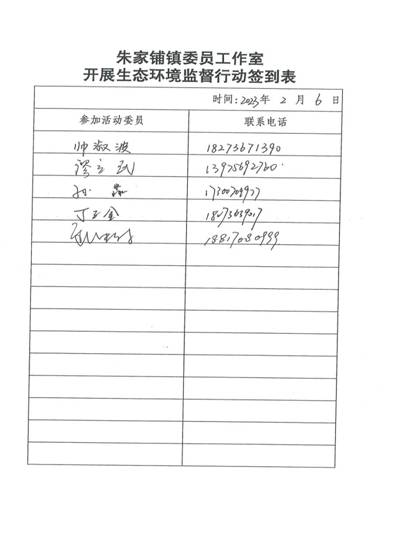 朱家铺镇委员工作室
开展生态环境监督行动签到表
时间:2023年 2 月 6 日
参加活动委员 联系电话
帅淑波 18273671390
13975692760
孙
丁玉金
18817080999